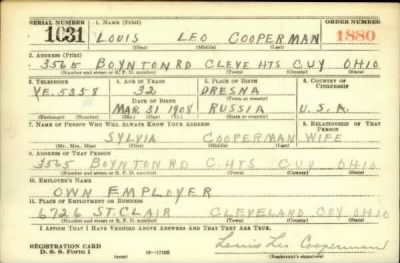 SERIAL NUMBER 1. NAME (Print) ORDER NUMBER
1031 LOUIS LEO COOPERMAN 1880
(First) (Middle) (Last)
2. ADDRESS (Print)
3565 BOYNTON RD CLEVE HTS CUY OHIO
(Number and street or R. F. D. number) (Town) (County) (State)
3. TELEPHONE 4. AGE IN YEARS 5. PLACE OF BIRTH 6. COUNTRY OF CITIZENSHIP
YE. 5358 32 DRESNA
DATE OF BIRTH (Town or county)
MAR. 31 1908 RUSSIA U.S.A.
(Exchange) (Number) (Mo.) (Day) (Yr.) (State or country)
7. NAME OF PERSON WHO WILL ALWAYS KNOW YOUR ADDRESS 8. RELATIONSHIP OF THAT PERSON
SYLVIA COOPERMAN WIFE
(Mr., Mrs., Miss) (First) (Middle) (Last)
9. ADDRESS OF THAT PERSON
3565 BOYNTON RD C. HTS CUY OHIO
(Number and street or R. F. D. number) (Town) (County) (State)
10. EMPLOYER'S NAME
OWN EMPLOYER
11. PLACE OF EMPLOYMENT OR BUSINESS
6726 ST. CLAIR CLEVELAND CUY OHIO
(Number and street or R. F. D. number) (Town) (County) (State)
I AFFIRM THAT I HAVE VERIFIED ABOVE ANSWERS AND THAT THEY ARE TRUE.
REGISTRATION CARD Louis Leo Cooperman
D. S. S. Form 1 (Registrant's signature)